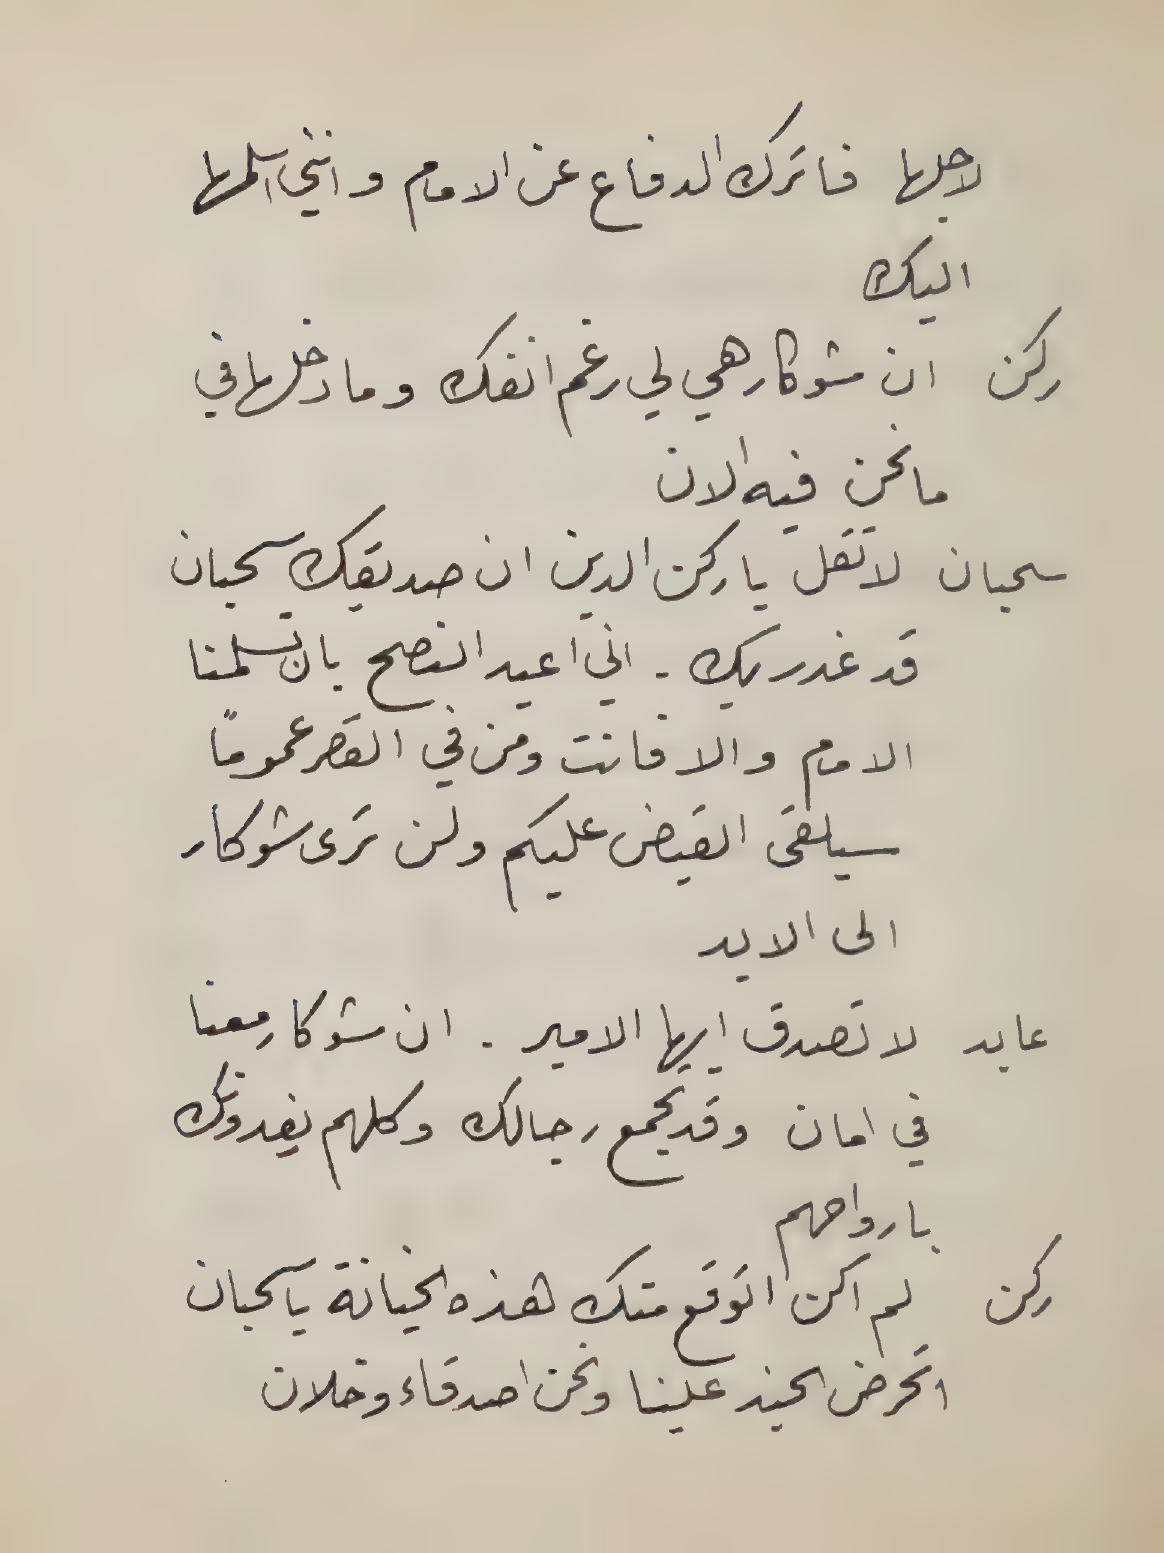 لاجلها فاترك الدفاع عن الامام وانني اسلمها
اليك
ركن ان شوكار هي لي رغم انفك وما دخلها في
ما نحن فيه الان
سحبان لا تقل يا ركن الدين ان صديقك سحبان
قد غدر بك . اني اعيد النصح بان تسلمنا
الامام والا فانت ومن في القصر عموماً
سيلقى القبض عليكم ولن ترى شوكار
الى الابد
عابد لا تصدق ايها الامير . ان شوكار معنا
في امان وقد تجمع رجالك وكلهم يفدونك
بارواحهم
ركن لم اكن اتوقع منك هذه الخيانة يا سحبان
اتحرض الجند علينا ونحن اصدقاء وخلان